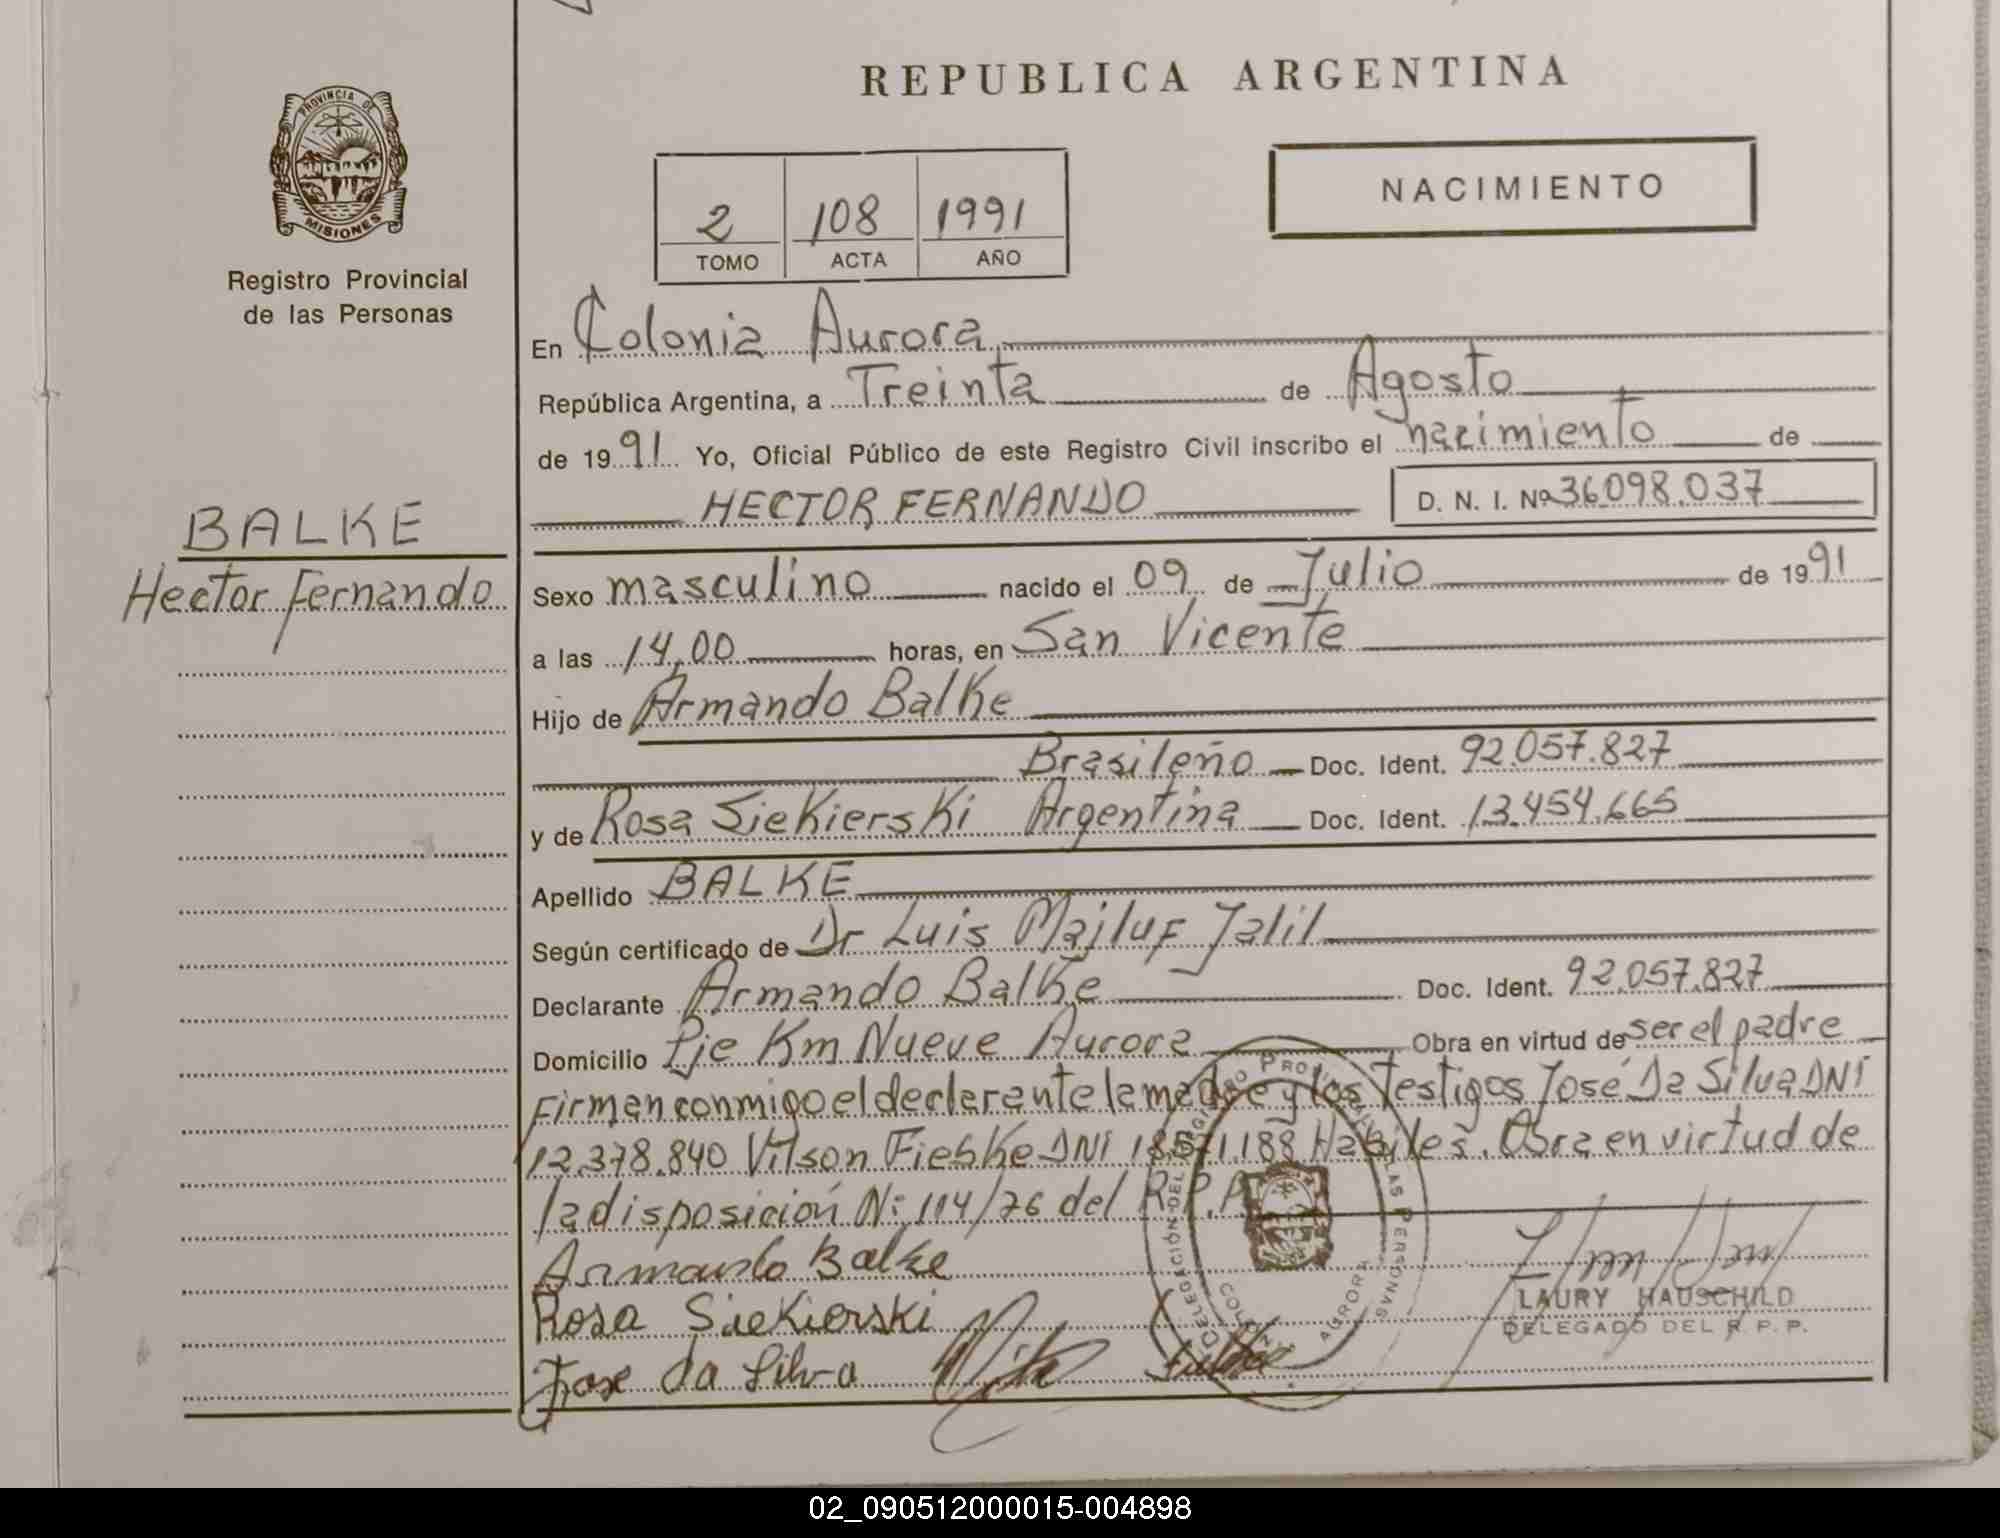 REPUBLICA ARGENTINA
PROVINCIA DE
MISIONES
Registro Provincial
de las Personas
NACIMIENTO
2 108 1991
TOMO ACTA AÑO
En Colonia Aurora
República Argentina, a Treinta de Agosto
de 1991 Yo, Oficial Público de este Registro Civil inscribo el nacimiento de
HECTOR FERNANDO D. N. I. Nº 36098.037
BALKE
Hector Fernando
Sexo masculino nacido el 09 de Julio de 1991
a las 14,00 horas, en San Vicente
Hijo de Armando Balke
Brasileño Doc. Ident. 92.057.827
y de Rosa Siekierski Argentina Doc. Ident. 13.454.665
Apellido BALKE
Según certificado de Dr Luis Majluf Jalil
Declarante Armando Balke Doc. Ident. 92.057.827
Domicilio Pje Km Nueve Aurora Obra en virtud de ser el padre
Firman conmigo el declarante la madre y los Testigos José Da Silva DNI
12.378.840 Vilson Fiebke DNI 18.571.188 Habiles. Obra en virtud de
la disposición Nº 114/76 del R.P.P
Armando Balke
Rosa Siekierski
Jose da Silva
DELEGACIÓN DEL REGISTRO PROVINCIAL DE LAS PERSONAS
COLONIA AURORA
LAURY HAUSCHILD
DELEGADO DEL R. P. P.
02_090512000015-004898